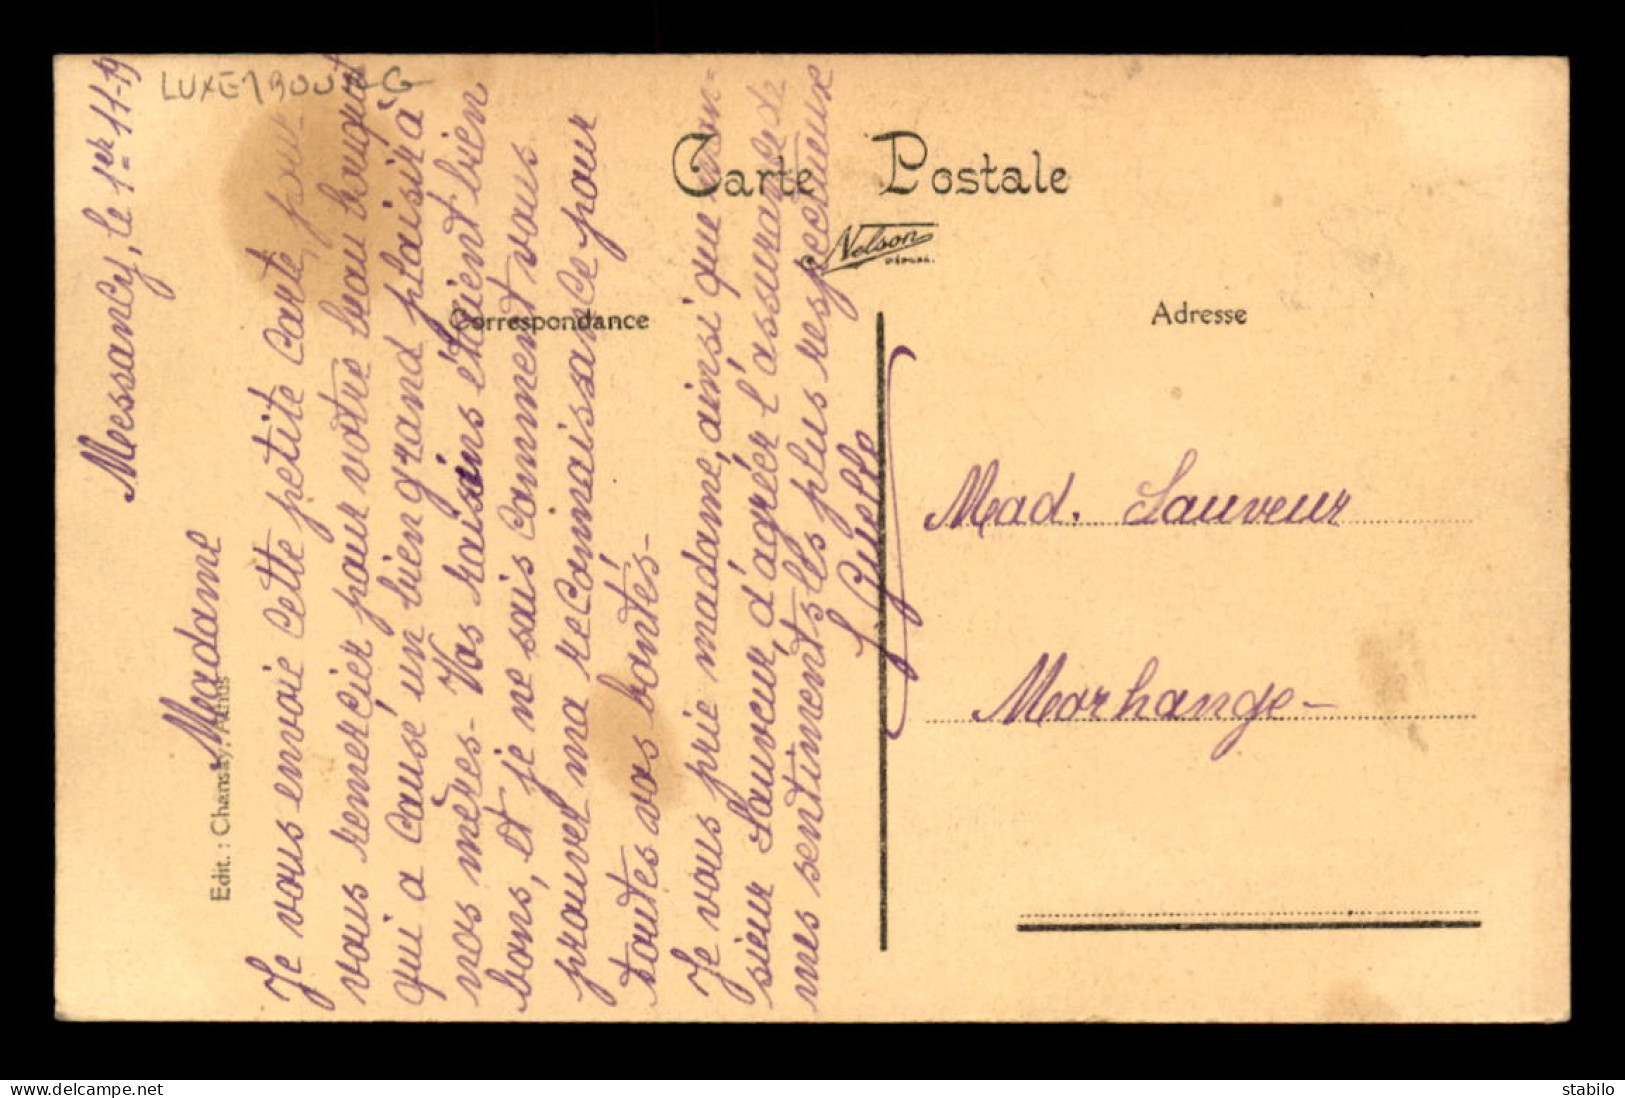 LUXEMBOURG
Carte Postale
Nelson
Correspondance
Adresse
Edit. : Chansay, Athus
Messancy, le 1er-11-19
Madame
Je vous envoie cette petite carte, pour
vous remercier pour votre beau bouquet
qui a causé un bien grand plaisir à
nos mères - Vos raisins étaient bien
bons, et je ne sais comment vous
prouver ma reconnaissance pour
toutes vos bontés -
Je vous prie madame, ainsi que mon-
sieur Sauveur, d'agréer l'assurance de
mes sentiments les plus respectueux
Mad. Sauveur
Morhange -
delcampe.net
stabilo